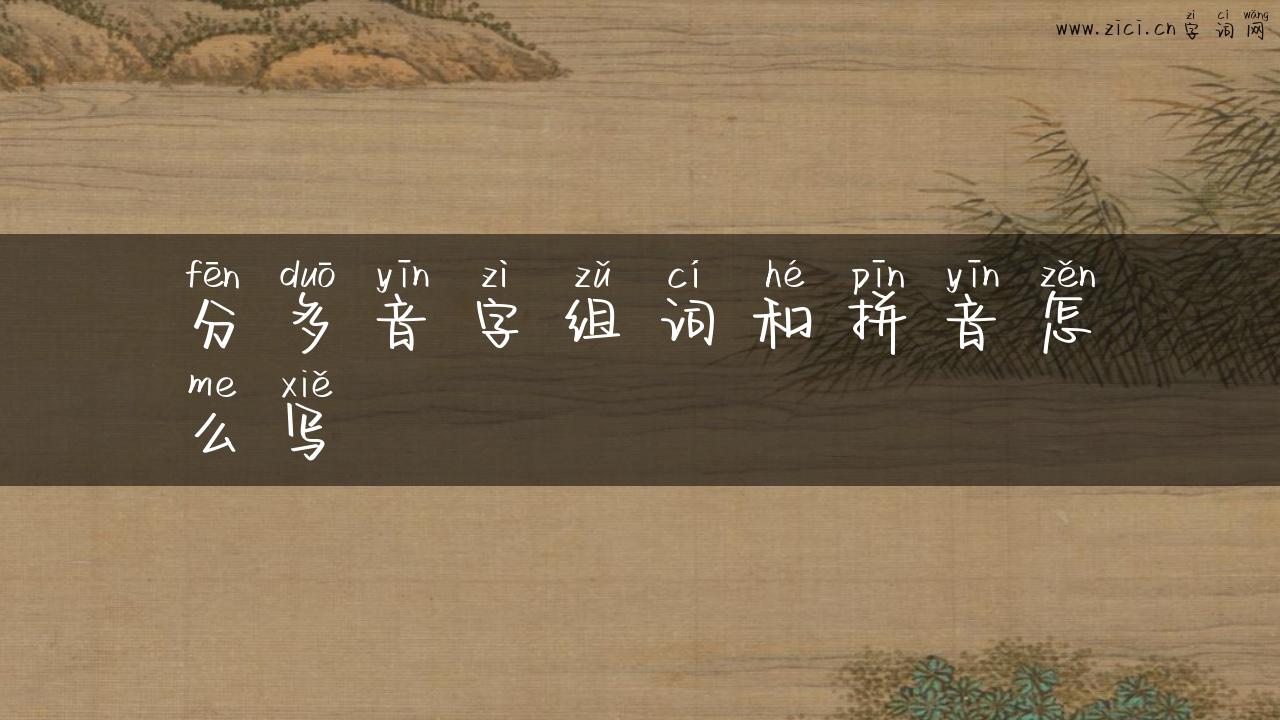 zì cí wǎng
www.zici.cn 字 词 网
fēn duō yīn zì zǔ cí hé pīn yīn zěn
分 多 音 字 组 词 和 拼 音 怎
me xiě
么 写